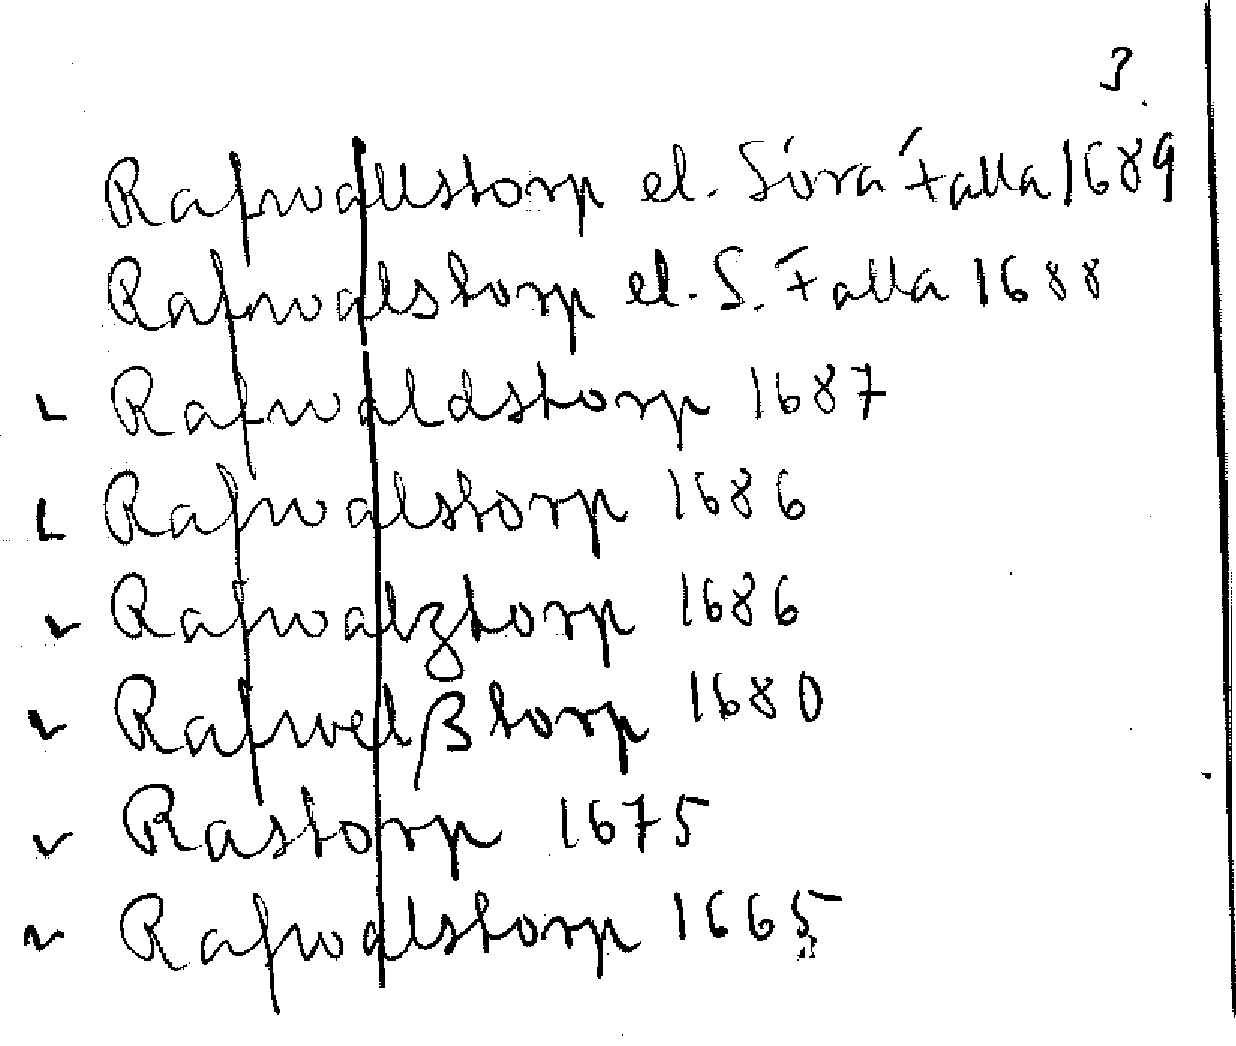 3.
Rafwallstorp el. Södra Falla 1689
Rafwalstorp el. S. Falla 1688
Rafwaldstorp 1687
Rafwalstorp 1686
Rafwalztorp 1686
Rafwelßtorp 1680
Rastorp 1675
Rafwalstorp 1665